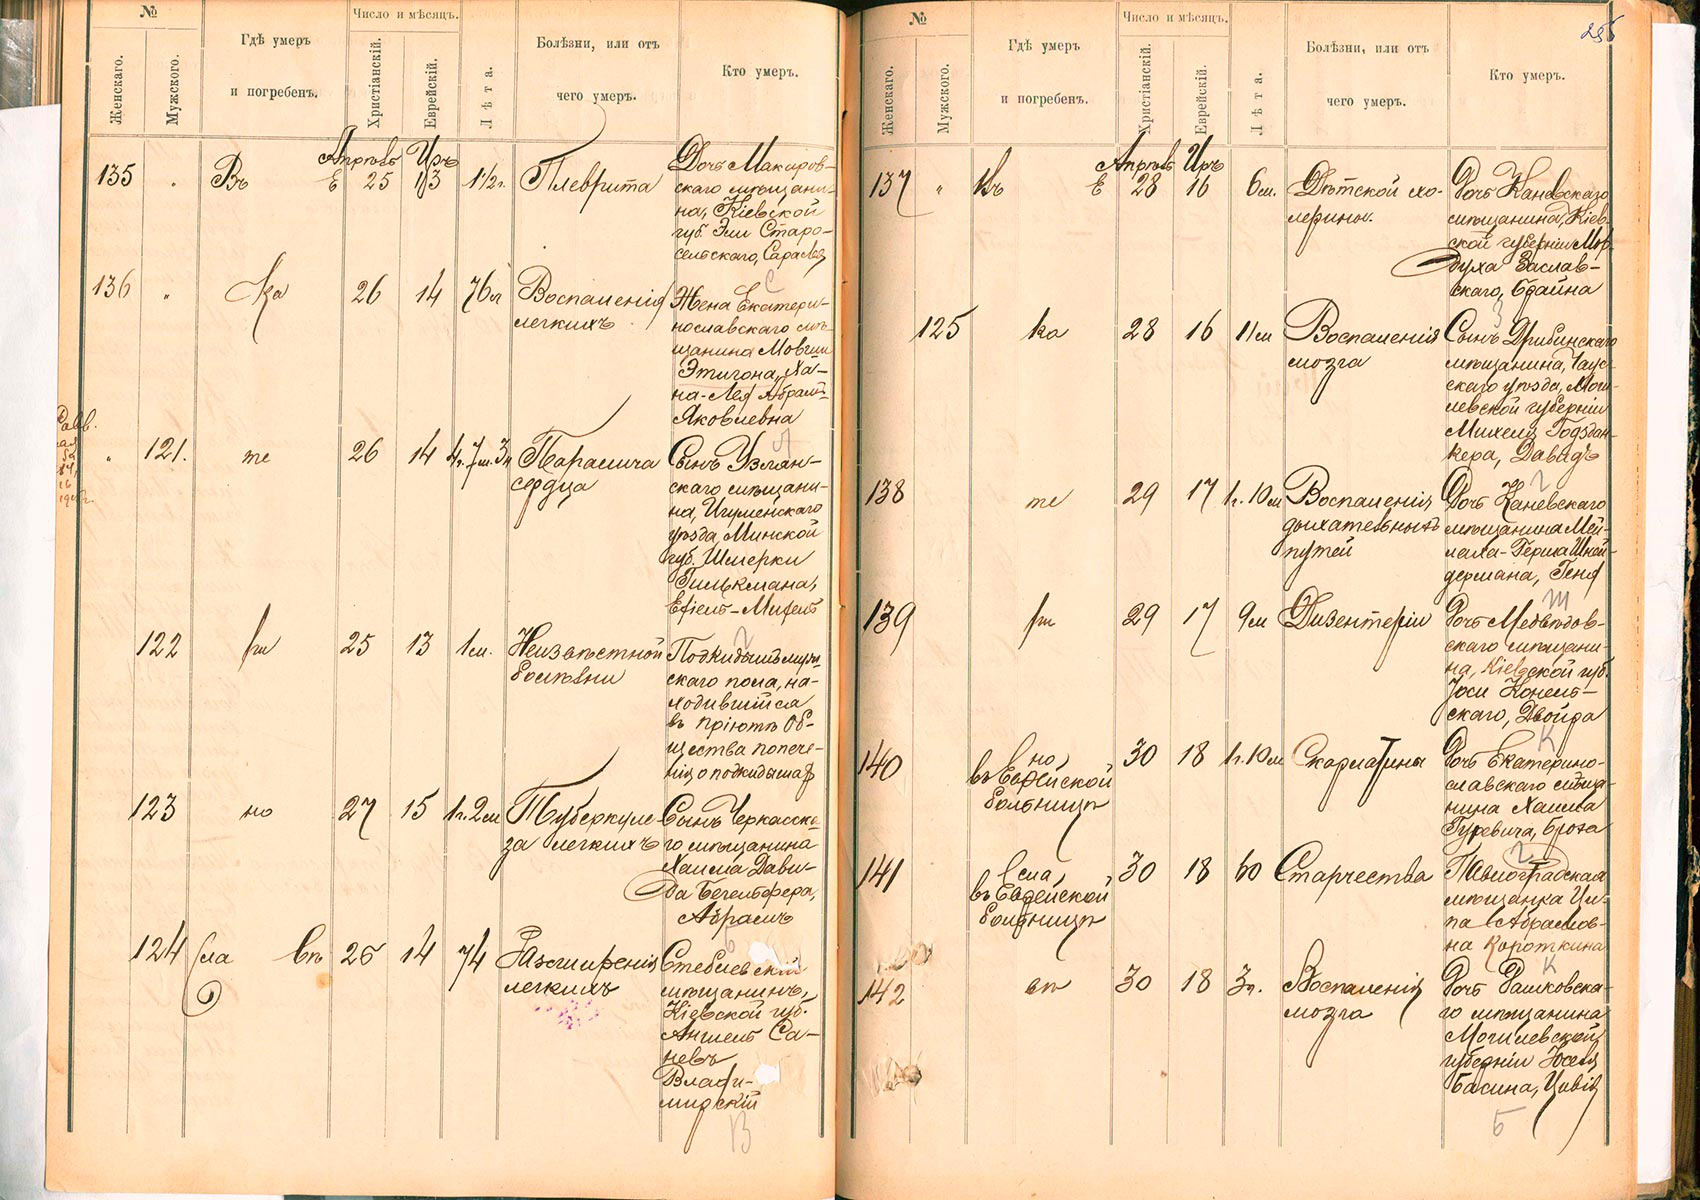 №
Женскаго.
Мужскаго.
Гдѣ умеръ
и погребенъ.
Число и мѣсяцъ.
Христіанскій.
Еврейскій.
Лѣта.
Болѣзни, или отъ
чего умеръ.
Кто умеръ.
135
"
Въ
Апрѣль Иръ
25
13
1 1/2 г.
Плеврита
Дочь Макаров-
скаго мѣщани-
на, Кіевской
губ. Эли Старо-
сельскаго, Сара
136
"
Ка
26
14
76 л
Воспаленія
легкихъ
Жена Екатери-
нославскаго мѣ-
щанина Мовши
Этигона, Ха-
на-Лея Абрам-
Яковлевна
"
121.
те
26
14
4г. 7м. 3н
Паралича
сердца
Сынъ Узлян-
скаго мѣщани-
на, Игуменскаго
уѣзда, Минской
губ. Шмерки
Гилькмана,
Ехіель-Михель
122
ри
25
13
1 м.
Неизвѣстной
болѣзни
Подкидышъ муж-
скаго пола, на-
ходившійся
въ пріютѣ Об-
щества попече-
нія о подкидышах
123
но
27
15
1г. 2м
Туберкуле-
за легкихъ
Сынъ Черкасска-
го мѣщанина
Хаима Дави-
да Бегельфера,
Абрамъ
124
сла
вѣ
26
14
74
Разширенія
легкихъ
Стеблевскій
мѣщанинъ,
Кіевской губ.
Аншель Са-
невъ
Влади-
мирскій
В
№
255
Женскаго.
Мужскаго.
Гдѣ умеръ
и погребенъ.
Число и мѣсяцъ.
Христіанскій.
Еврейскій.
Лѣта.
Болѣзни, или отъ
чего умеръ.
Кто умеръ.
137
"
Въ
Апрѣль Иръ
28
16
6 м.
Дѣтской хо-
лерины
Дочь Каневскаго
мѣщанина, Кіев-
ской губерніи Мор-
духа Заслав-
скаго, Бдайна
125
ка
28
16
11 м
Воспаленія
мозга
Сынъ Дрибинскаго
мѣщанина, Чаус-
скаго уѣзда, Моги-
левской губерніи
Михеля Годздан-
кера, Давидъ
138
те
29
17
1г. 10м
Воспаленія
дыхательныхъ
путей
Дочь Каневскаго
мѣщанина Мей-
лаха-Герша Шней-
дермана, Геня
139
ри
29
17
9 м
Дизентеріи
Дочь Медвѣдов-
скаго мѣщани-
на, Кіевской губ.
Іоси Конель-
скаго, Двойра
140
но,
въ Еврейской
больницѣ
30
18
1г. 10м
Скарлатины
Дочь Екатерино-
славскаго мѣща-
нина Хаима
Гуревича, Броха
141
сла,
въ Еврейской
больницѣ
30
18
60
Старчества
Павлоградская
мѣщанка Ци-
па Абрамов-
на Короткина
142
вѣ
30
18
3 г.
Воспаленія
мозга
Дочь Рашковска-
го мѣщанина
Могилевской
губерніи Іосея
Басина, Цивія
Б